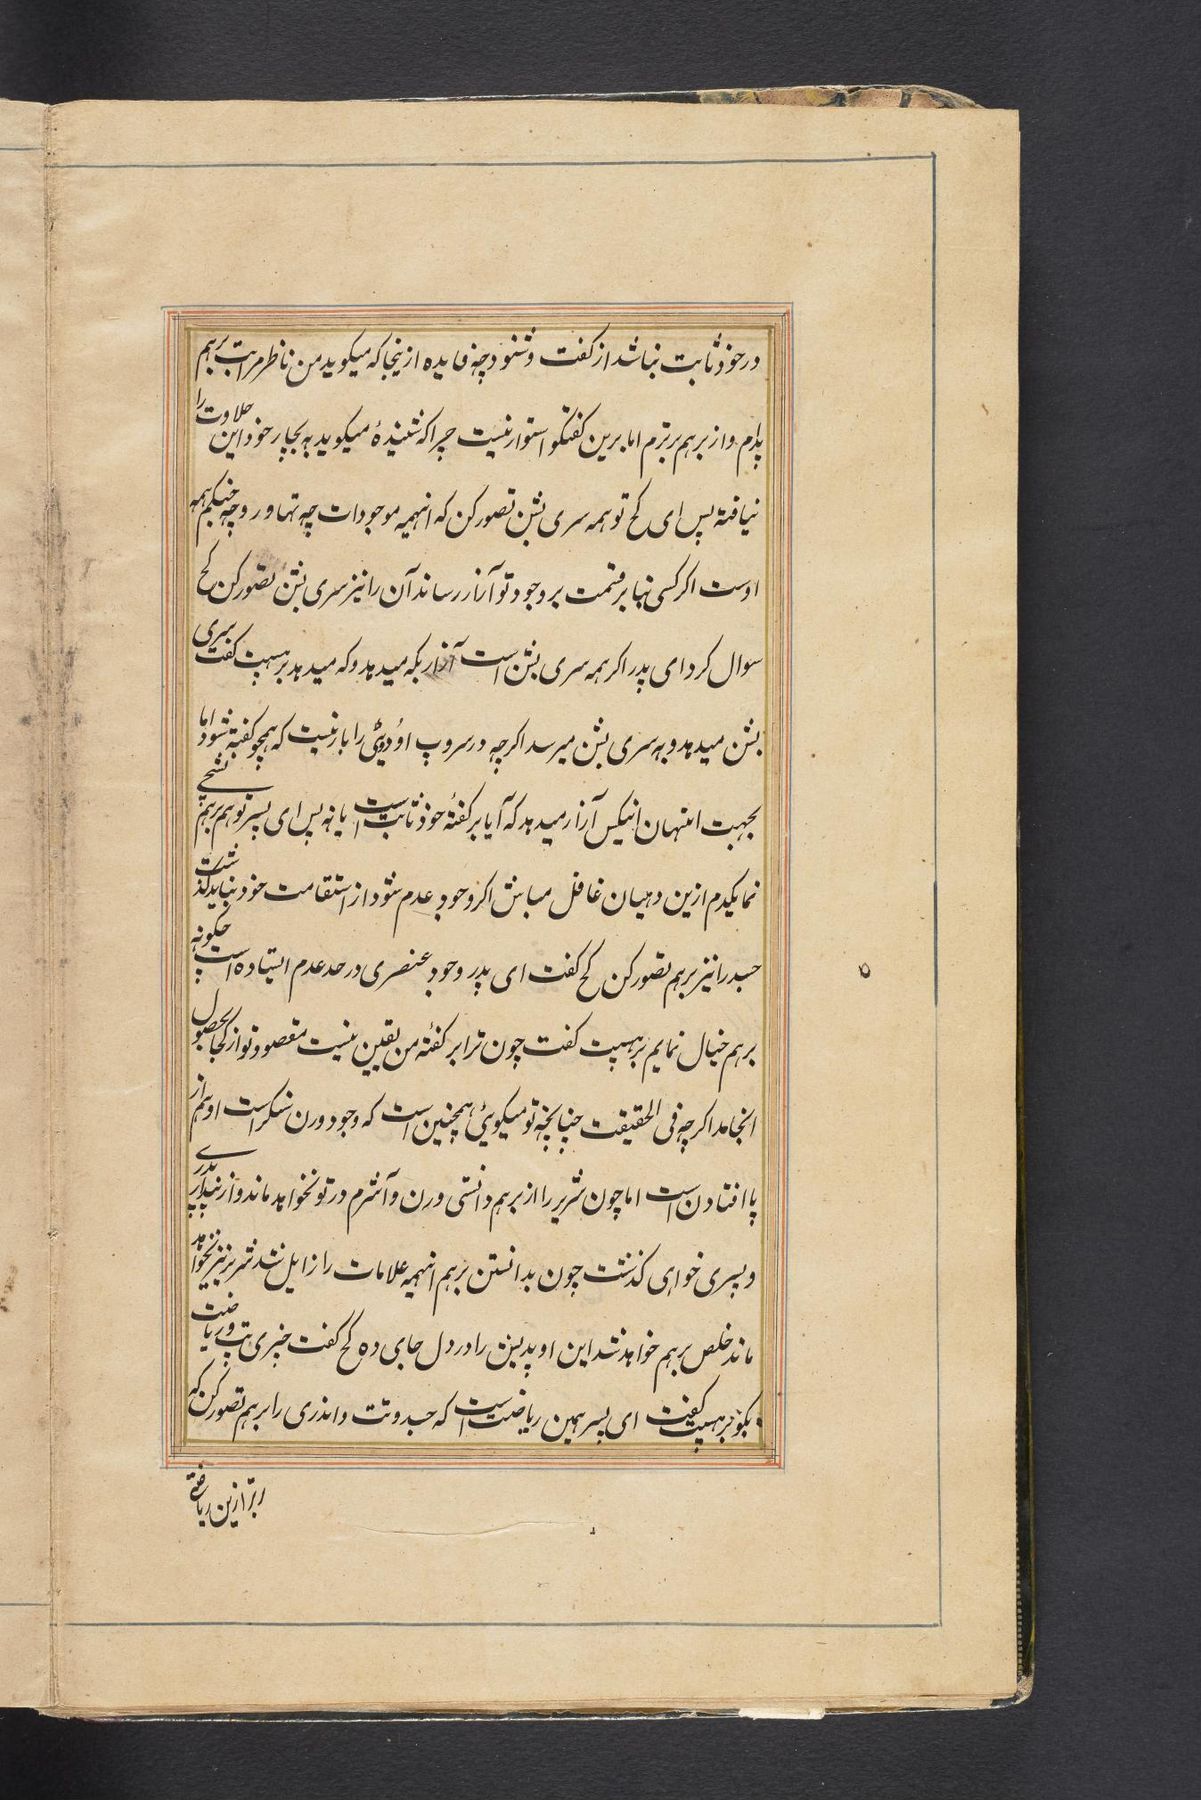 در خود ثابت نباشد از گفت و شنود چه فایده ازینجا که میکوید من ناظر مراتب برهم
یدام و از برهم برترم اما برین کفتکو استوار نیست چرا که شنیدهٔ میکوید به بچار خود این حلاوت را
نیافته پس ای کچ تو همه سری بشن تصور کن که اینهمه موجودات چه تهاور و چه جنکم همه
اوست اکر کسی بنابر قسمت بر وجود تو آزار رساند آن را نیز سری بشن تصور کن کچ
سوال کرد ای پدر اکر همه سری بشن است آزار بکه میدهد و که میدهد برهسپت کفت سری
بشن میدهد و به سری بشن میرسد اکرچه در سروپ او دویی را بار نیست که همچو کفته شود اما
بجهت امتهان اینکس آزار میدهد که آیا بر کفتهٔ خود ثابت است یا نه پس ای پسر تو هم برهم نشچی
نما یکدم ازین دهیان غافل مباش اکر وجود عدم شود از استقامت خود نباید کذشت
جسد را نیز برهم تصور کن کچ کفت ای پدر وجود عنصری در حد عدم ایستاده است چکونه
برهم خیال نمایم برهسپت کفت چون ترا بر کفتهٔ من یقین نیست مقصود تو از کجا بحصول
انجامد اکرچه فی الحقیقت چنانچه تو میکویی همچنین است که وجود ورن شنکر است او هم از
پا افتادن است اما چون شریر را از برهم دانستی ورن و آشرم در تو نخواهد ماند و از پدری
و پسری خواهی کذشت چون بدانستن برهم اینهمه علامات را زایل شد شریر نیز نخواهد
ماند خلص برهم خواهد شد این اوپدیس را در دل جای ده کچ کفت چیزی تپ و ریاضت
بکو برهسپت کفت ای پسر همین ریاضت است که جسد و تت و اندری را برهم تصور کن که
برتر ازین ریاضتی